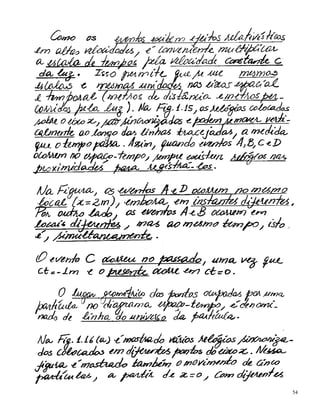 Como os eventos exibem efeitos relativísticos
em altas velocidades, é conveniente multiplicar
a escala de tempos pela velocidade constante C
da luz. Isso permite que se use mesmas
escalas e mesmas unidades nos eixos espacial
e temporal (metros de distância e metros per-
corridos pela luz). Na Fig. 1.15, os relógios colocados
sobre o eixo x, são sincronizados e podem se mover verti-
calmente ao longo das linhas tracejadas, a medida
que o tempo passa. Assim, quando eventos A, B, C e D
ocorrem no espaço-tempo, sempre existem relógios nas
proximidades para registrá-los.
Na Figura, os eventos A e D ocorrem no mesmo
local (x=2m), embora, em instantes diferentes.
Por outro lado, os eventos A e B ocorrem em
locais diferentes, mas ao mesmo tempo, isto
é, simultaneamente.
O evento C ocorreu no passado, uma vez que
ct=-1m e o presente ocorre em ct=0.
O lugar geométrico dos pontos ocupados por uma
partícula no diagrama espaço-tempo, é denomi-
nado de linha do universo da partícula.
Na Fig. 1.16(a) é mostrado vários relógios sincroniza-
dos colocados em diferentes pontos do eixo x. Nessa
figura é mostrado também o movimento de cinco
partículas, a partir de x=0, com diferentes
54